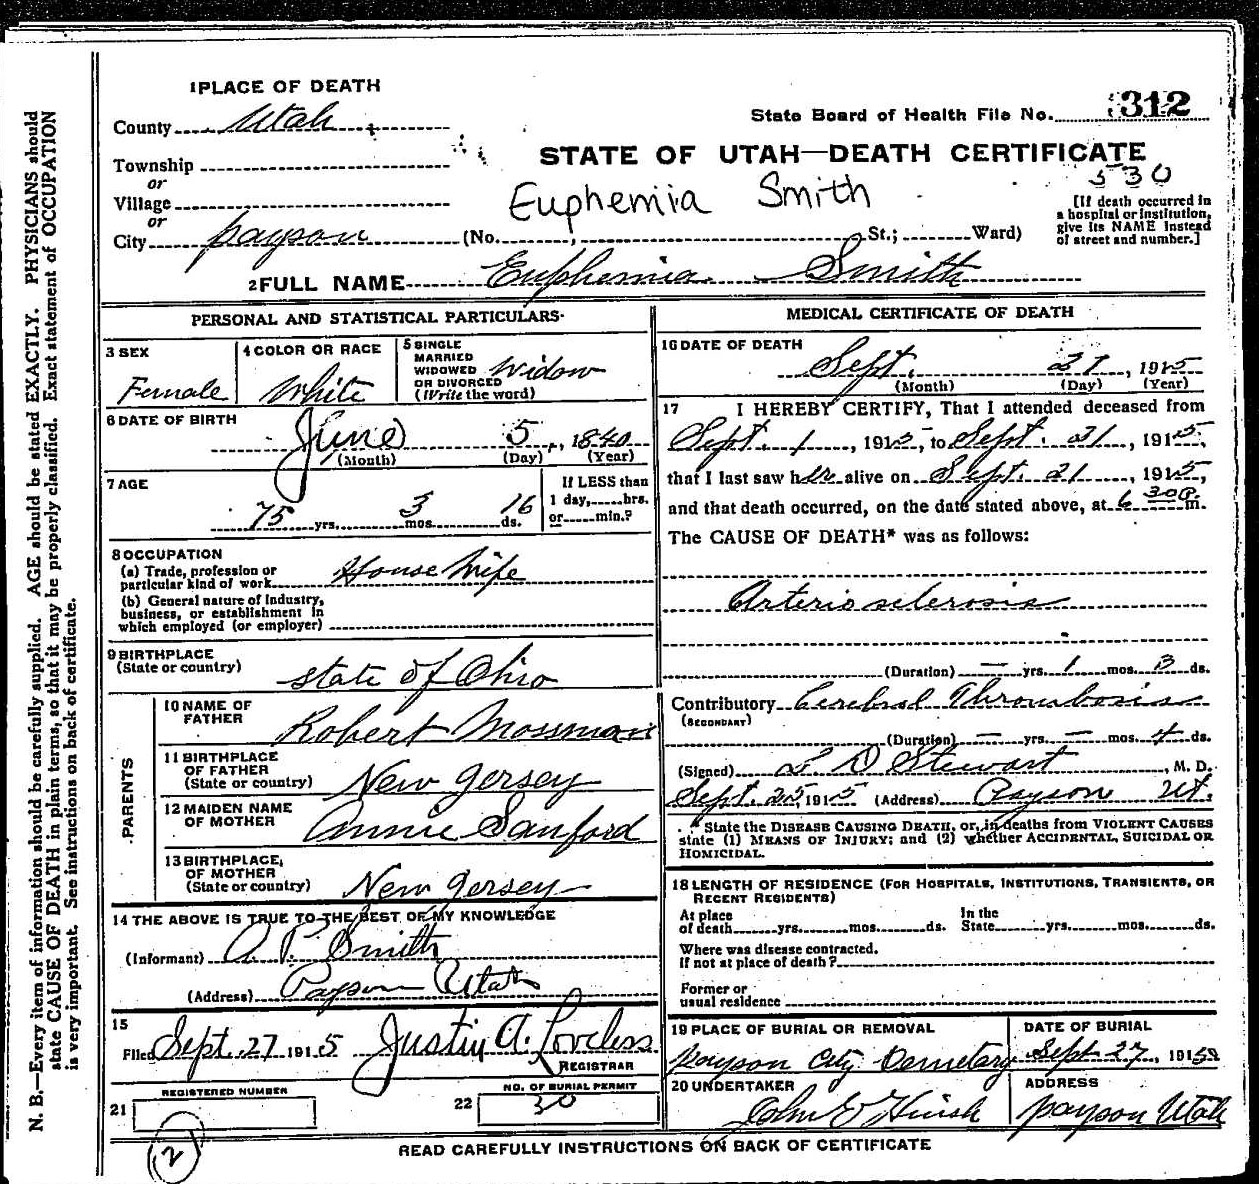 N. B.—Every item of information should be carefully supplied. AGE should be stated EXACTLY. PHYSICIANS should
state CAUSE OF DEATH in plain terms, so that it may be properly classified. Exact statement of OCCUPATION
is very important. See instructions on back of certificate.
1 PLACE OF DEATH
County Utah
State Board of Health File No. 312
Township
STATE OF UTAH—DEATH CERTIFICATE
530
or
Village
Euphemia Smith
[If death occurred in
a hospital or institution,
give its NAME instead
of street and number.]
or
City payson (No. , St.; Ward)
2 FULL NAME Euphemia Smith
PERSONAL AND STATISTICAL PARTICULARS
3 SEX
Female
4 COLOR OR RACE
White
5 SINGLE
MARRIED
WIDOWED
OR DIVORCED
(Write the word)
Widow
6 DATE OF BIRTH
June 5, 1840
(Month) (Day) (Year)
7 AGE
75 yrs. 3 mos. 16 ds.
If LESS than
1 day, hrs.
or min.?
8 OCCUPATION
(a) Trade, profession or
particular kind of work House Wife
(b) General nature of Industry,
business, or establishment in
which employed (or employer)
9 BIRTHPLACE
(State or country) state of Ohio
PARENTS
10 NAME OF
FATHER Robert Mossman
11 BIRTHPLACE
OF FATHER
(State or country) New Jersey
12 MAIDEN NAME
OF MOTHER Annie Sanford
13 BIRTHPLACE,
OF MOTHER
(State or country) New Jersey
14 THE ABOVE IS TRUE TO THE BEST OF MY KNOWLEDGE
(Informant) A. P. Smith
(Address) Payson Utah
15
Filed Sept. 27 1915 Justin A. Loveless
REGISTRAR
REGISTERED NUMBER
21
NO. OF BURIAL PERMIT
22 30
MEDICAL CERTIFICATE OF DEATH
16 DATE OF DEATH
Sept. 21, 1915
(Month) (Day) (Year)
17 I HEREBY CERTIFY, That I attended deceased from
Sept. 1, 1915, to Sept. 21, 1915,
that I last saw her alive on Sept. 21, 1915,
and that death occurred, on the date stated above, at 6 30 P. m.
The CAUSE OF DEATH* was as follows:
Arterio sclerosis
(Duration) — yrs. 1 mos. 3 ds.
Contributory Cerebral Thrombosis
(SECONDARY)
(Duration) — yrs. — mos. 4 ds.
(Signed) L D Stewart, M. D.
Sept. 25, 1915 (Address) Payson Ut.
*State the DISEASE CAUSING DEATH, or, in deaths from VIOLENT CAUSES
state (1) MEANS OF INJURY; and (2) whether ACCIDENTAL, SUICIDAL OR
HOMICIDAL.
18 LENGTH OF RESIDENCE (FOR HOSPITALS, INSTITUTIONS, TRANSIENTS, OR
RECENT RESIDENTS)
At place
of death yrs. mos. ds.
In the
State yrs. mos. ds.
Where was disease contracted.
If not at place of death?
Former or
usual residence
19 PLACE OF BURIAL OR REMOVAL
payson City Cemetary
DATE OF BURIAL
Sept 27, 1915
20 UNDERTAKER
ADDRESS
payson Utah
READ CAREFULLY INSTRUCTIONS ON BACK OF CERTIFICATE
2